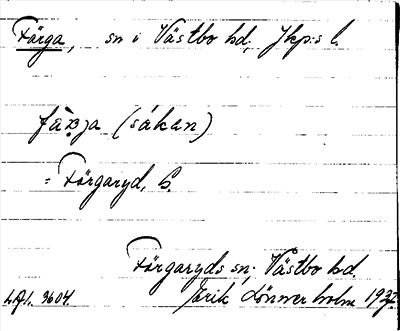 Färga, sn i Västbo hd, Jkp:s l.
(sákan)
= Färgaryd, S.
Färgaryds sn; Västbo hd.
L.G.1. 3604. Jarik Lönnerholm 1932.